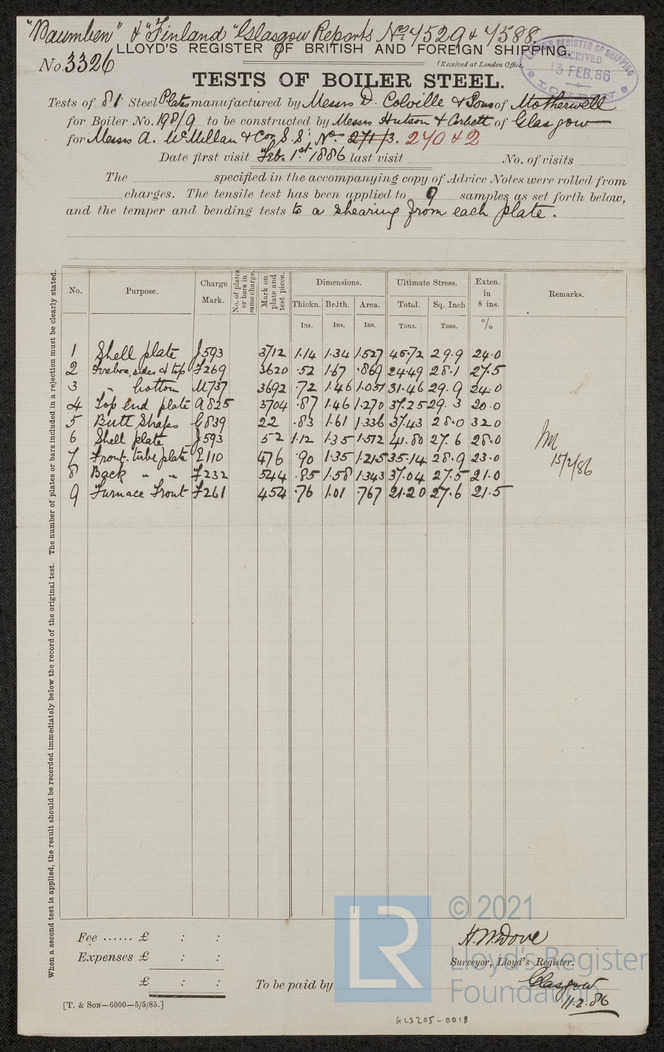 "Baumben" & "Finland" Glasgow Reports Nos 7529 & 7588.
LLOYD'S REGISTER OF BRITISH AND FOREIGN SHIPPING.
No. 3326
(Received at London Office
LLOYD'S REGISTER OF SHIPPING
RECEIVED
13 FEB. 86
LONDON
TESTS OF BOILER STEEL.
Tests of 81 Steel Plates manufactured by Messrs D. Colville & Sons of Motherwell
for Boiler No. 198/9 to be constructed by Messrs Hutson & Corbett of Glasgow
for Messrs A. McMillan & Co S.S. No. 271/3. 270 & 2
Date first visit Feb. 1st 1886 last visit No. of visits
The specified in the accompanying copy of Advice Notes were rolled from
charges. The tensile test has been applied to 9 samples as set forth below,
and the temper and bending tests to a shearing from each plate.
When a second test is applied, the result should be recorded immediately below the record of the original test. The number of plates or bars included in a rejection must be clearly stated.
No. Purpose. Charge Mark. No. of plates or bars in same charge. Mark on plate and test piece. Dimensions. Ultimate Stress. Exten. in 8 ins. Remarks.
Thickn. Brdth. Area. Total. Sq. Inch
Ins. Ins. Ins. Tons. Tons. %
1 Shell plate J593 3712 1.14 1.34 1.527 45.72 29.9 24.0
2 Firebox, sides & top F269 3620 .52 1.67 .869 24.49 28.1 27.5
3 " bottom M737 3692 .72 1.46 1.051 31.46 29.9 24.0
4 Top End plate A825 3704 .87 1.46 1.270 37.25 29.3 20.0
5 Butt Straps G839 22 .83 1.61 1.336 37.43 28.0 32.0
6 Shell plate J593 52 1.12 1.35 1.512 41.80 27.6 28.0
7 Front tube plate E110 476 .90 1.35 1.215 35.14 28.9 23.0
8 Back " " F232 544 .85 1.58 1.343 37.04 27.5 21.0
9 Furnace Front F261 454 .76 1.01 .767 21.20 27.6 21.5
15/2/86
Fee ...... £ : :
Expenses £ : :
£ : :
To be paid by
H. W. Dove
Surveyor, Lloyd's Register.
Glasgow
11.2.86
[T. & SON—6000—5/5/85.]
GLS205-0018
LR
© 2021
Lloyd's Register
Foundation